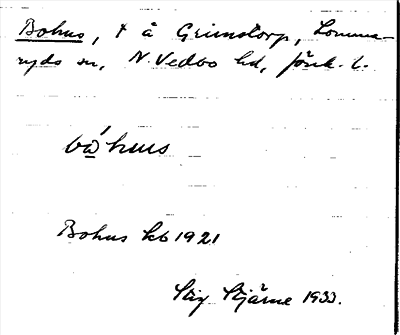 Bohus, t å Grimstorp, Lomma-
ryds sn, N. Vedbo hd, Jönk. l.
bǻhus
Bohus kb 1921
Stig Stjärne 1933.